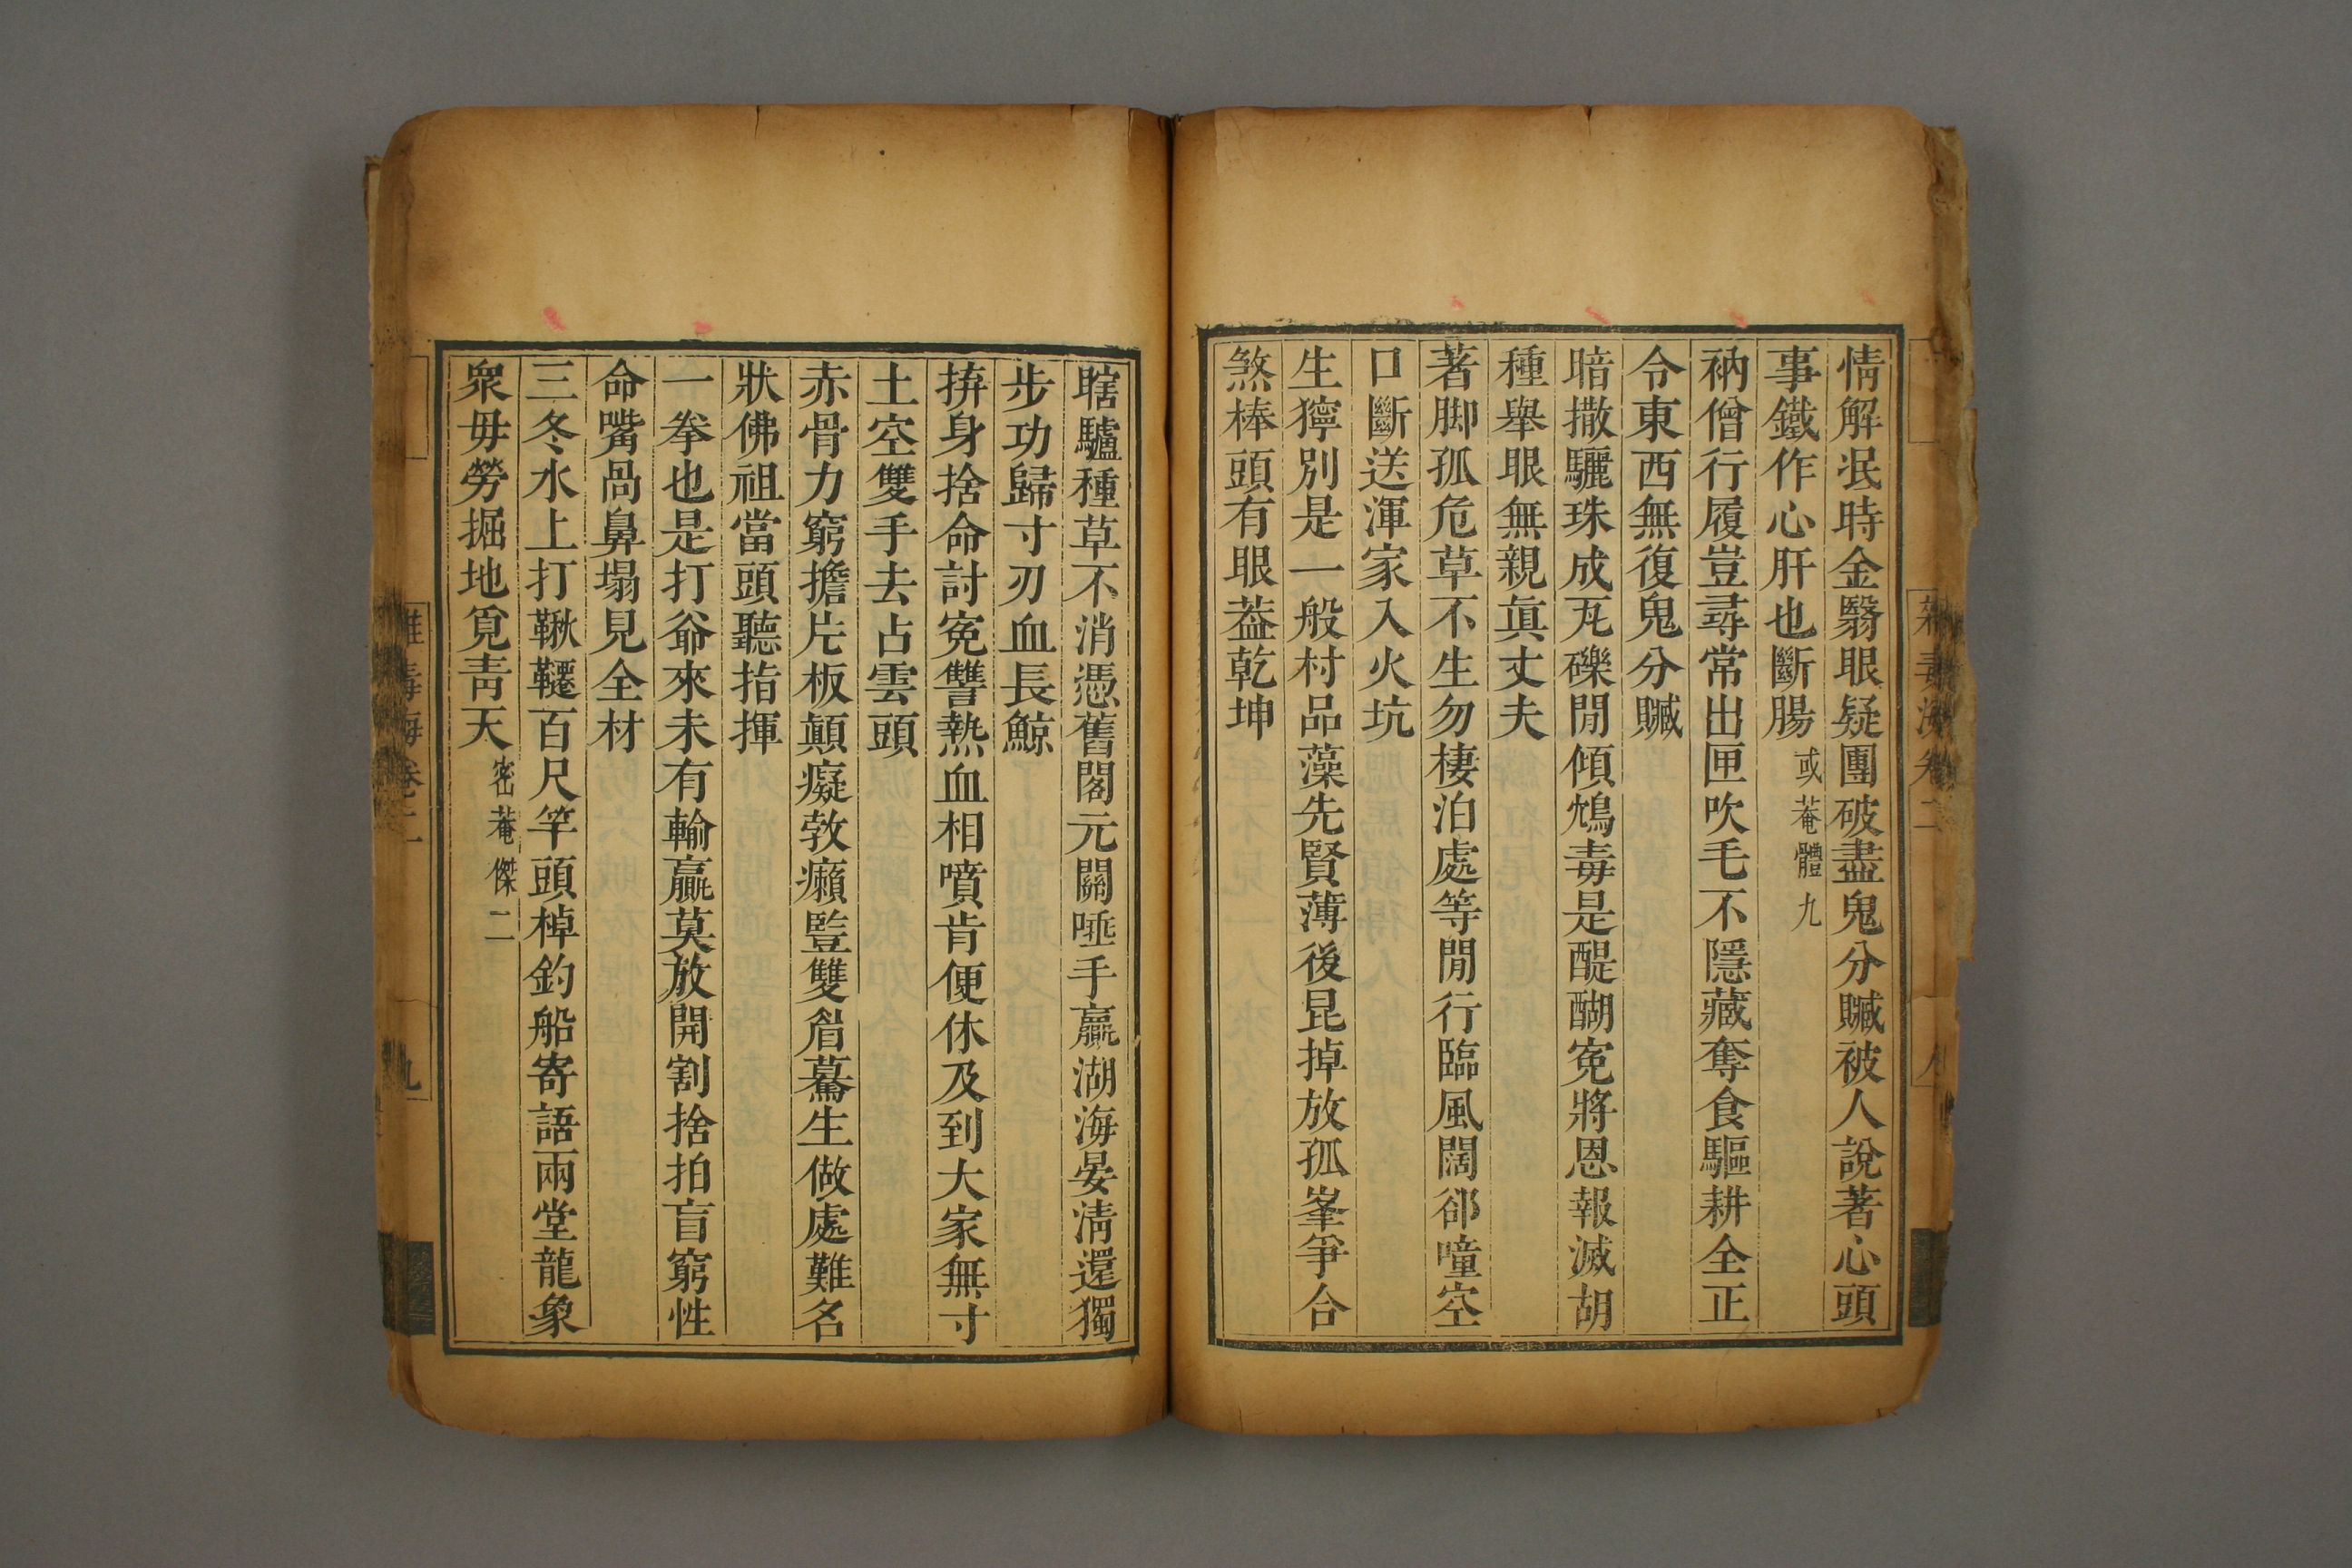 情解泯時金翳眼疑團破盡鬼分贓被人說著心頭
事鐵作心肝也斷腸 或菴體 九
衲僧行履豈尋常出匣吹毛不隱藏奪食驅耕全正
令東西無復鬼分贓
暗撒驪珠成瓦礫閒傾鴆毒是醍醐寃將恩報滅胡
種舉眼無親眞丈夫
著脚孤危草不生勿棲泊處等閒行臨風闊郤㗛空
口斷送渾家入火坑
生獰別是一般村品藻先賢薄後昆掉放孤峯爭合
煞棒頭有眼葢乾坤
瞎驢種草不消憑舊閣元關唾手贏湖海晏淸還獨
步功歸寸刃血長鯨
拚身捨命討寃讐熱血相噴肯便休及到大家無寸
土空雙手去占雲頭
赤骨力窮擔片板顚癡敦癩豎雙眉驀生做處難名
狀佛祖當頭聽指揮
一拳也是打爺來未有輸贏莫放開割捨拍盲窮性
命嘴咼鼻塌見全材
三冬水上打鞦韆百尺竿頭棹釣船寄語兩堂龍象
衆毋勞掘地覓靑天 密菴傑 二
雜毒海卷二 九